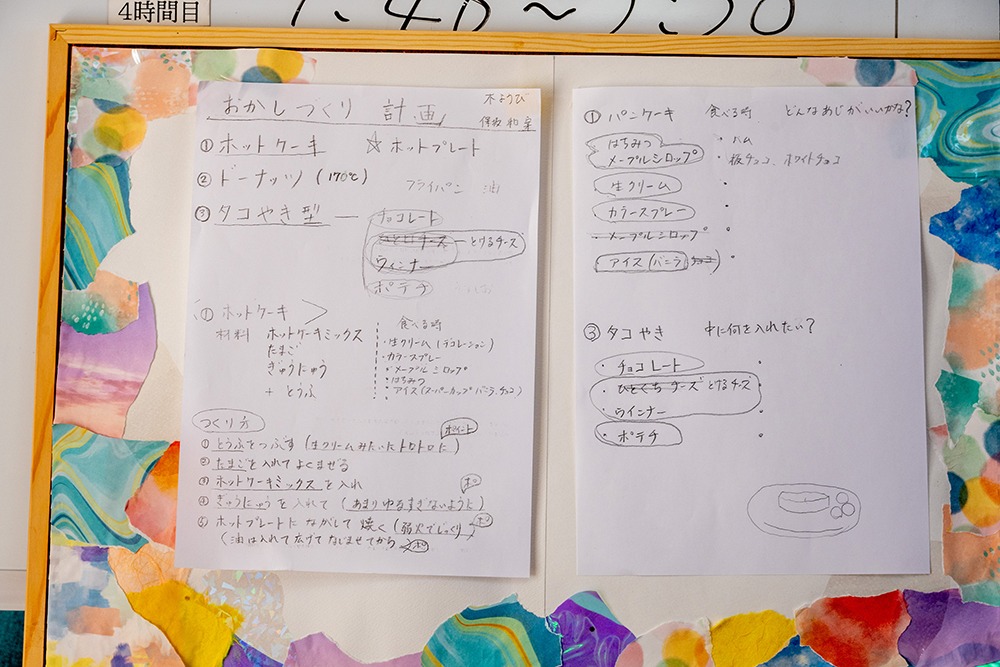 4時間目
1:40～3:30
おかしつくり 計画
木ようび
① ホットケーキ ☆ホットプレート
② ドーナッツ (170℃) フライパン 油
③ タコやき型 ー チョコレート
ひとくちチーズ ー とけるチーズ
ウィンナー
ポテチ
〈① ホットケーキ〉
材料 ホットケーキミックス
たまご
ぎゅうにゅう
+ とうふ
食べる時
・生クリーム (デコレーション)
・カラースプレー
・メープルシロップ
・はちみつ
・アイス (スーパーカップ バニラ、チョコ)
つくり方
ポイント
① とうふをつぶす (生クリームみたいにトロトロに)
② たまごを入れてよくまぜる
③ ホットケーキミックスを入れ
ポ
④ ぎゅうにゅうを入れて (あまりゆるすぎないように)
⑤ ホットプレートにながして 焼く (弱火でじっくり) ポ
(油は入れて広げて なじませてから ポ
① パンケーキ 食べる時 どんなあじがいいかな?
はちみつ
メープルシロップ
・ハム
・板チョコ、ホワイトチョコ
生クリーム
・カラースプレー
・メープルシロップ
・アイス (バニラ チョコ)
③ タコやき 中に何を入れたい?
・チョコレート
・ひとくちチーズ とけるチーズ
・ウインナー
・ポテチ